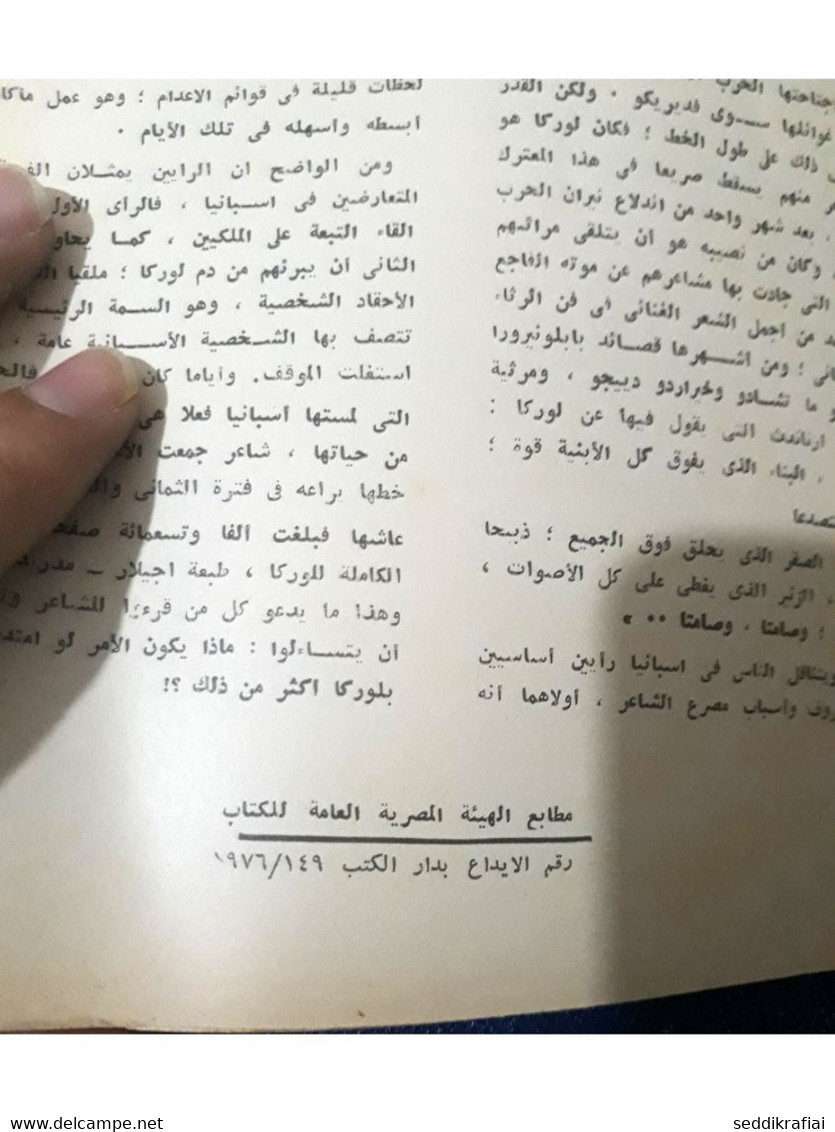 جتاحتها الحرب
غوائلها ســوى فديريكو . ولكن القدر
ذلك على طول الخط ؛ فكان لوركا هو
منهم يسقط صريعا فى هذا المعترك
، بعد شهر واحد من اندلاع نيران الحرب
، وكان من نصيبه هو أن يتلقى مراثيهم
التى جادت بها مشاعرهم عن موته الفاجع
من اجمل الشعر الغنائى فى فن الرثاء
؛ ومن اشــهرها قصــائد بابلونيرورا
ما تشــادو وخيراردو دييجو ، ومرثية
ارناندث التى يقول فيها عن لوركا :
، البناء الذى يفوق كل الأبنية قوة ؛
الصقر الذى يحلق فوق الجميع ؛ ذبيحا
، الزئير الذى يغطى على كل الأصوات ،
؛ وصامتا ، وصامتا ٠٠ »
ويتناقل الناس فى اسبانيا رأيين أساسيين
وأسباب مصرع الشاعر ، أولاهما أنه
لحظات قليلة فى قوائم الاعدام ؛ وهو عمل
ابسطه واسهله فى تلك الأيام .
ومن الواضح ان الرايين يمثــلان
المتعارضين فى اســبانيا ، فالرأى الأول
القاء التبعة على الملكيين ، كمــا
الثانى أن يبرئهم من دم لوركا ؛ ملقيا
الأحقاد الشخصية ، وهو السمة الرئيسية
تتصف بها الشــخصية الأســبانية عامة ،
استغلت الموقف. وأياما كان
التى لمستها أسبانيا فعلا هى
من حياتها ، شاعر جمعت
خطها يراعه فى فترة الثمانى
عاشها فبلغت الفا وتسعمائة
الكاملة للوركا ، طبعة اجيلار ــ
وهذا ما يدعو كل من قرءوا للشاعر
أن يتســاءلوا : ماذا يكون الأمر لو
بلوركا اكثر من ذلك ؟!
مطابع الهيئة المصرية العامة للكتاب
رقم الايداع بدار الكتب ١٩٧٦/١٤٩
seddikrafiai